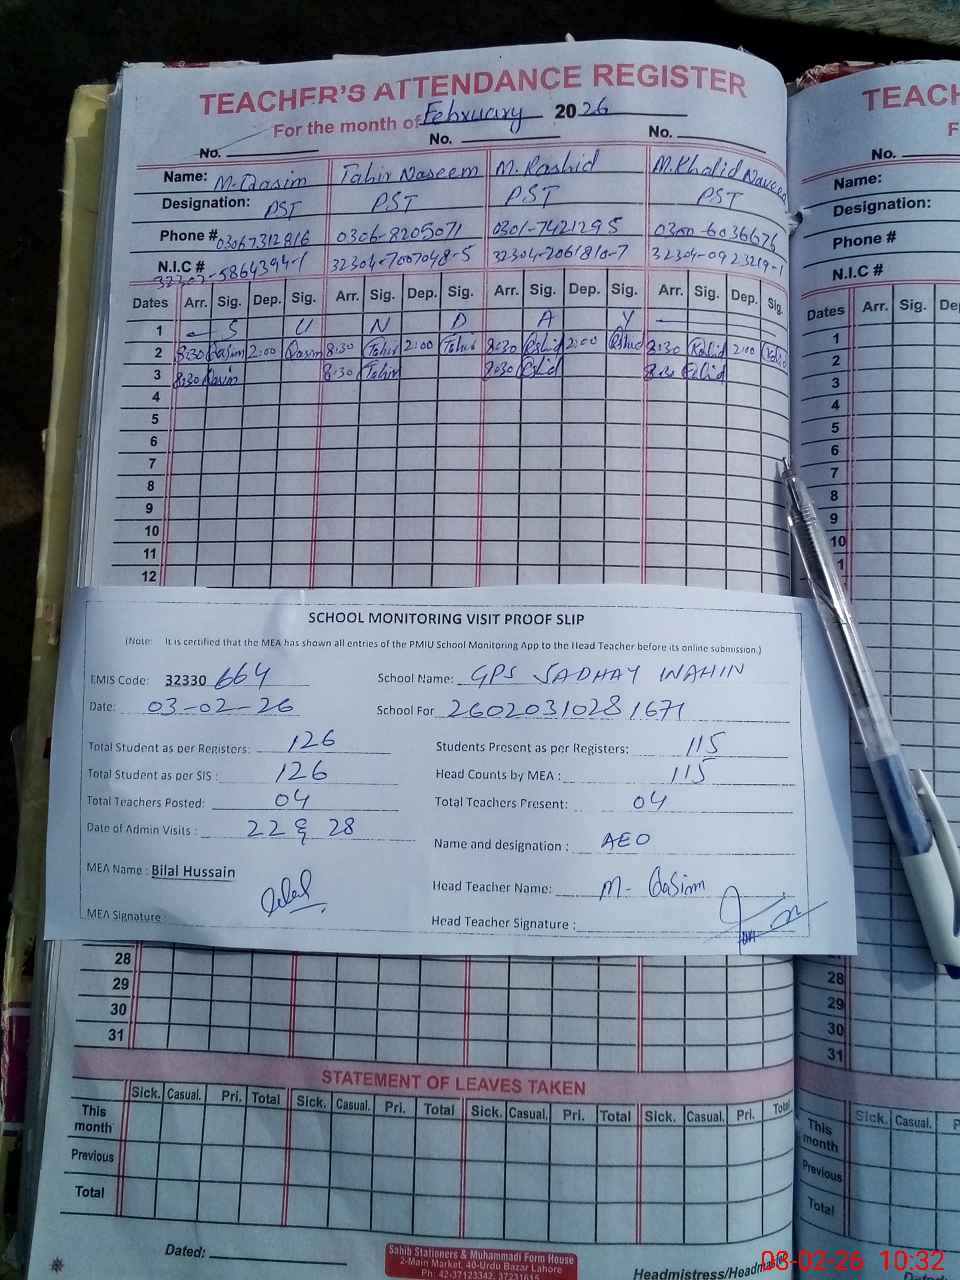 TEACHER'S ATTENDANCE REGISTER
For the month of February 2026
No. No. No.
Name: M. Qasim Tahir Naseem M. Rashid M. Khalid Naveed
Designation: PST PST PST PST
Phone # 03067312816 0306-8205071 0301-7421295 0300-6036676
N.I.C # 5864394-1 32304-7007048-5 32304-2061810-7 32304-0923219-1
Dates Arr. Sig. Dep. Sig. Arr. Sig. Dep. Sig. Arr. Sig. Dep. Sig. Arr. Sig. Dep. Sig.
1 S U N D A Y
2 8:30 Qasim 2:00 Qasim 8:30 Tahir 2:00 Tahir 8:30 Rshid 2:00 Rshid 8:30 2:00
3 8:30 Qasim 8:30 Tahir 8:30 8:30
4
5
6
7
8
9
10
11
12
SCHOOL MONITORING VISIT PROOF SLIP
(Note: It is certified that the MEA has shown all entries of the PMIU School Monitoring App to the Head Teacher before its online submission.)
EMIS Code: 32330 664 School Name: GPS SADHAY WAHIN
Date: 03-02-26 School For 26020310281671
Total Student as per Registers: 126 Students Present as per Registers: 115
Total Student as per SIS : 126 Head Counts by MEA : 115
Total Teachers Posted: 04 Total Teachers Present: 04
Date of Admin Visits : 22 & 28 Name and designation : AEO
MEA Name : Bilal Hussain Head Teacher Name: M. Qasim
MEA Signature : Bilal Head Teacher Signature :
28
29
30
31
STATEMENT OF LEAVES TAKEN
Sick. Casual. Pri. Total Sick. Casual. Pri. Total Sick. Casual. Pri. Total Sick. Casual. Pri. Total
This month
Previous
Total
Dated:
Sahib Stationers & Muhammadi Form House
2-Main Market, 40-Urdu Bazar Lahore
Ph: 42-37123342, 37231615
Headmistress/Headmaster
TEACH
F
No.
Name:
Designation:
Phone #
N.I.C #
Dates Arr. Sig. De
1
2
3
4
5
6
7
8
9
10
28
29
30
31
Sick. Casual. P
This month
Previous
Total
03-02-26 10:32